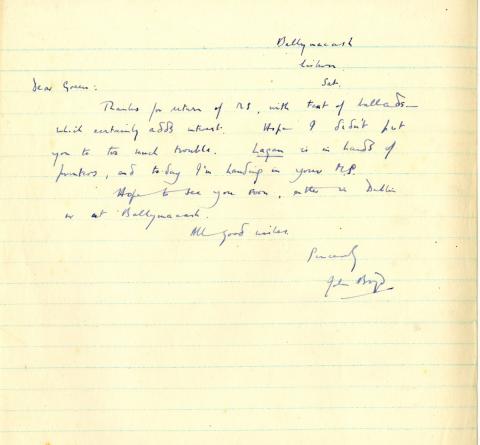 Ballymacash
Lisburn
Sat.
Dear Green:
Thanks for return of MS, with text of ballads—
which certainly adds interest. Hope I didn't put
you to too much trouble. Lagan is in hands of
printers, and today I'm handing in your MS.
Hope to see you soon, either in Dublin
or at Ballymacash.
All good wishes.
Sincerely
John Boyd